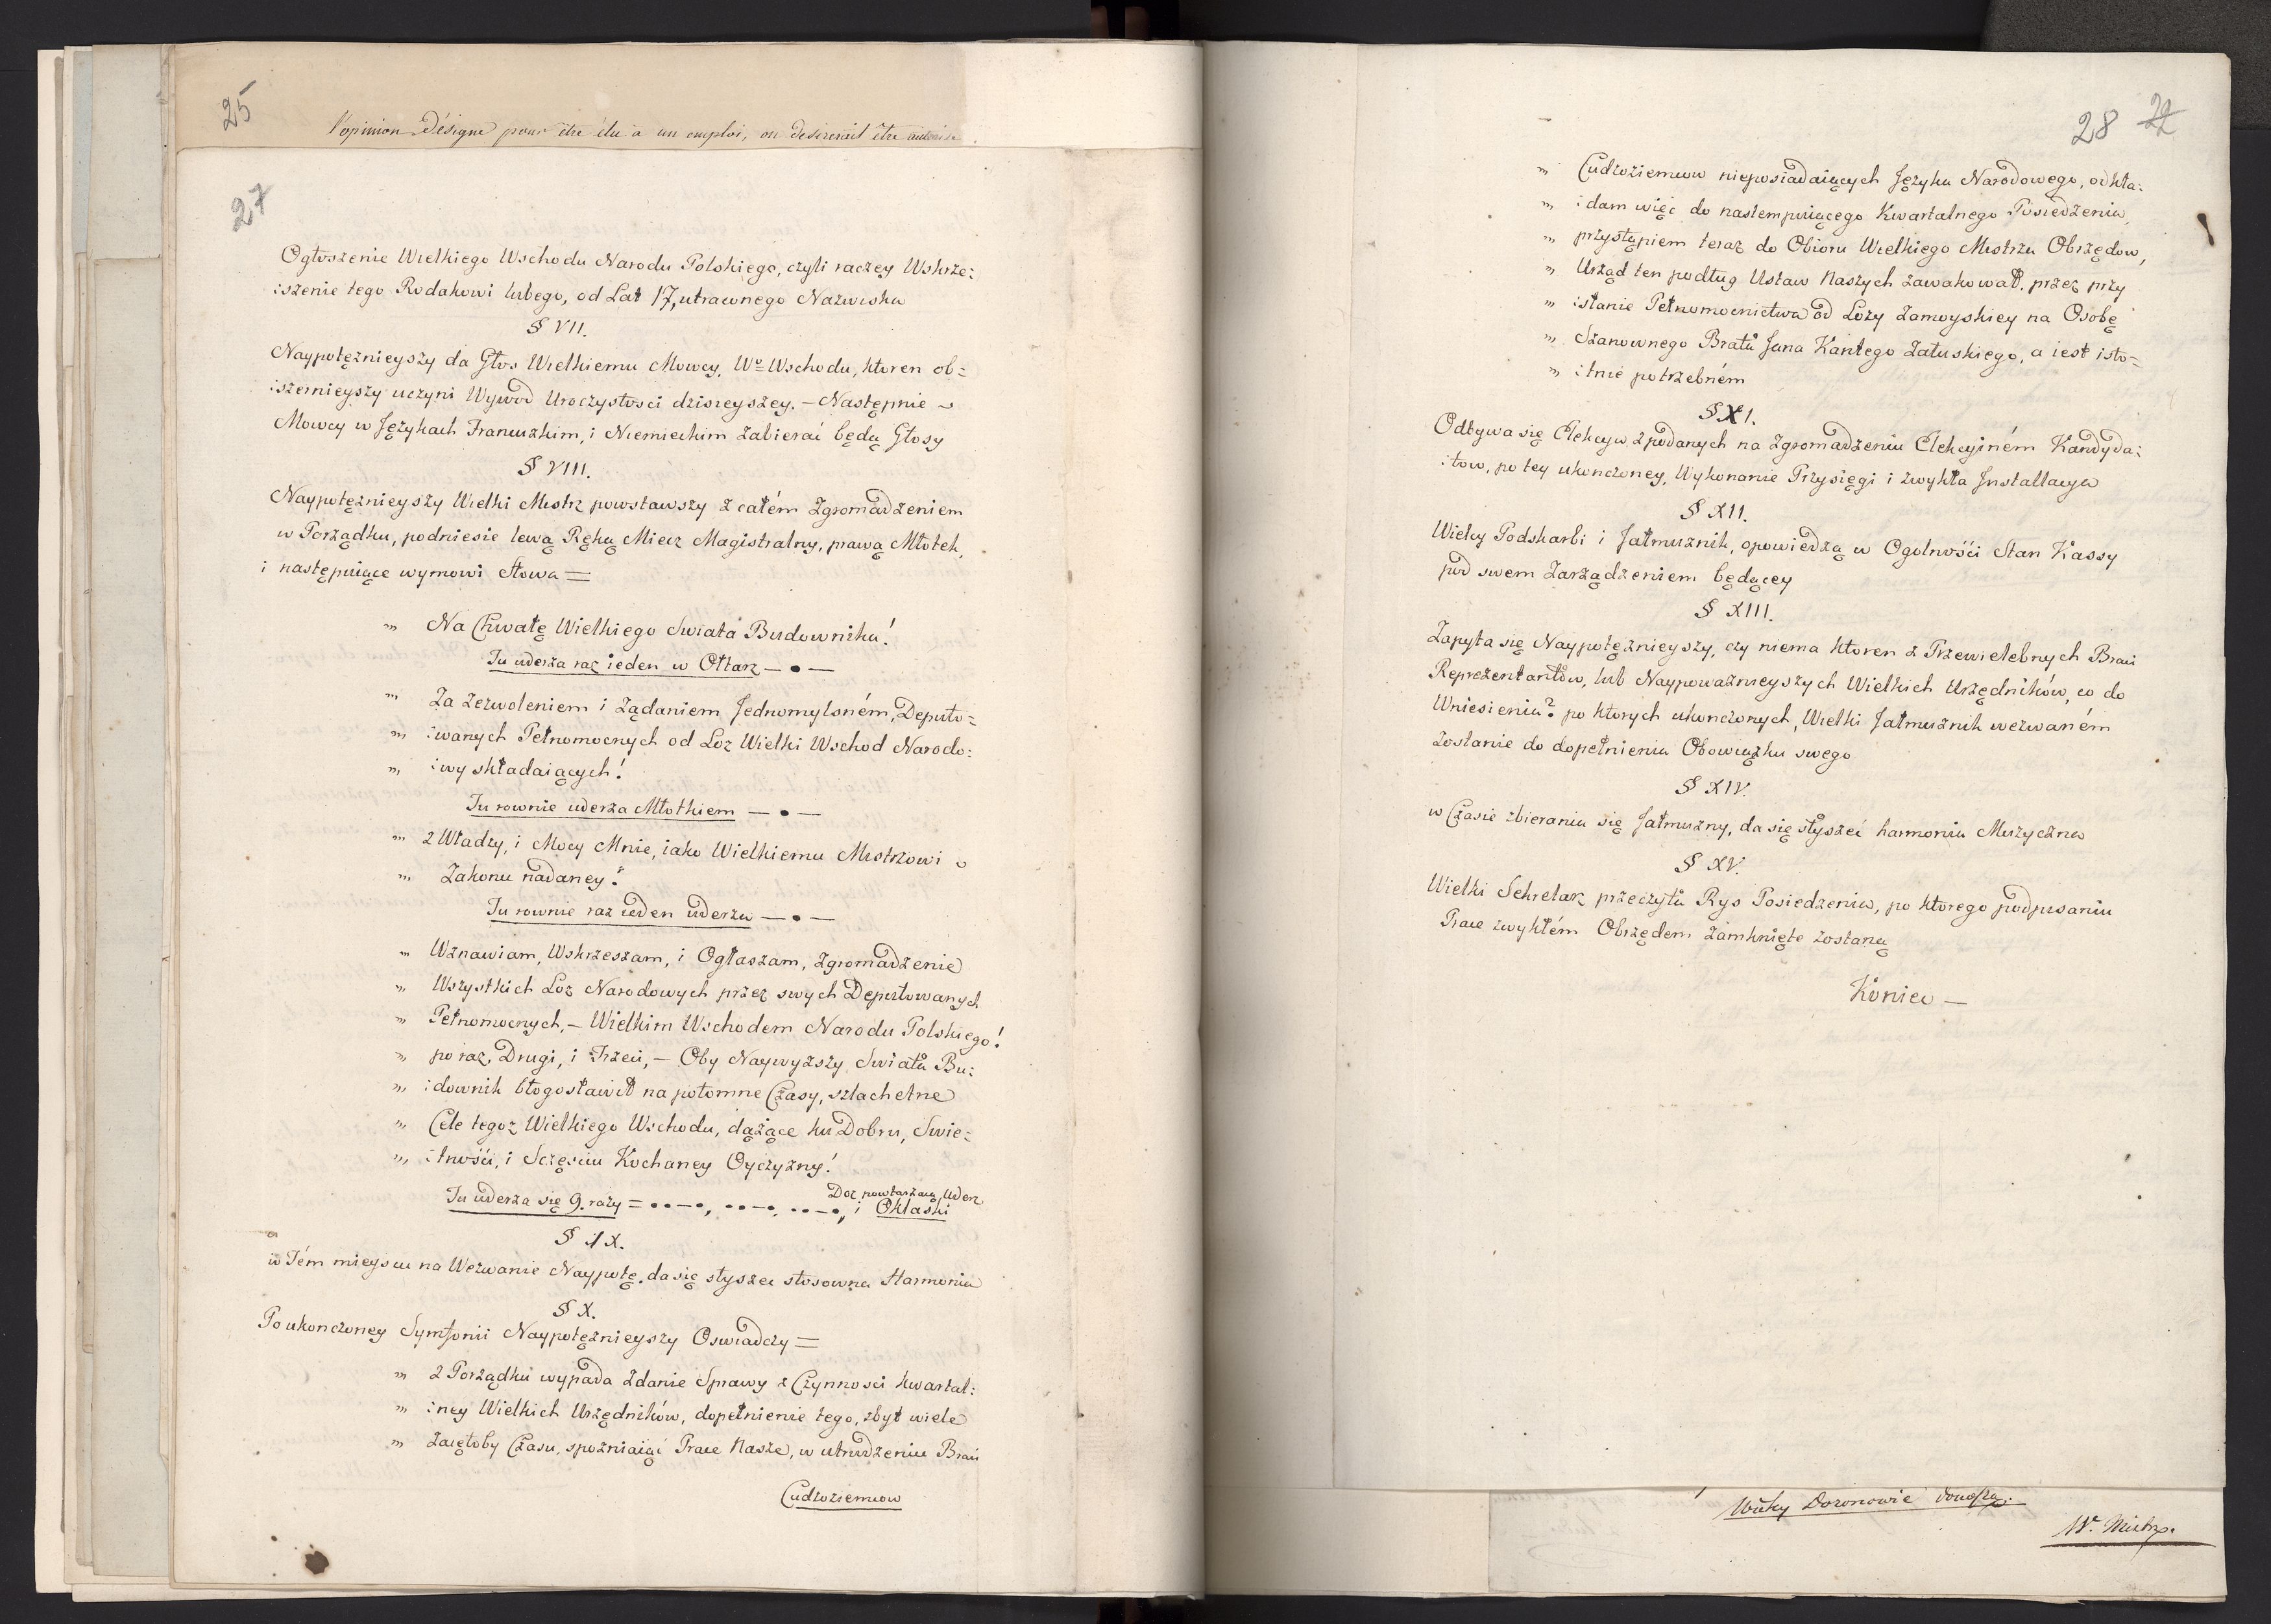 25
l'opinion désigne pour être élu à un emploi, on desirerait être
27
Ogłoszenie Wielkiego Wschodu Narodu Polskiego, czyli raczey Wskrze:
:szenie tego Rodakowi lubego, od Lat 17, utraconego Nazwiska
§ VII.
Naypotężnieyszy da Głos Wielkiemu Mowcy, Wo Wschodu, ktoren ob=
:szernieyszy uczyni Wywod Uroczystosci dzisieyszey. — Następnie
Mowcy w Językach Francuzkim, i Niemieckim zabierać będą Głosy
§ VIII.
Naypotężnieyszy Wielki Mistrz powstawszy z całém Zgromadzeniem
w Porządku, podniesie lewą Ręką Miecz Magistralny, prawą Młotek,
i następuiące wymowi słowa =
" Na Chwałę Wielkiego Swiata Budownika!
Tu uderza raz ieden w Ołtarz — • —
" Za zezwoleniem i żądaniem Jednomyslném, Deputo=
" :wanych Pełnomocnych od Loz Wielki Wschod Narodo:
" :wy składaiących!
Tu rownie uderza Młotkiem — • —
" z Władzy, i Mocy Mnie, iako Wielkiemu Mistrzowi
" Zakonu nadaney!
Tu rownie raz ieden uderza — • —
" Wznawiam, Wskrzeszam, i Ogłaszam, Zgromadzenie
" Wszystkich Loz Narodowych przez swych Deputowanych
" Pełnomocnych, — Wielkim Wschodem Narodu Polskiego!
" po raz, Drugi, i Trzeci, — Oby Naywyższy Swiata Bu:
" :downik błogosławił na potomne Czasy, szlachetne
" Cele tegoż Wielkiego Wschodu, dążące ku Dobru, Swie=
" :tności, i Sczęsciu Kochaney Oyczyzny!
Doz powtarzaią Uderz
Tu uderza się 9. razy = • • — •, • • — •, • • — •, i Oklaski
§ IX.
w Tém mieyscu na Wezwanie Naypotę. da się słyszeć stosowna Harmonia
§ X.
Po ukonczoney Symfonii Naypotężnieyszy Oswiadczy =
" z Porządku wypada zdanie Sprawy z Czynnosci kwartal:
" :ney Wielkich Urzędników, dopełnienie tego, zbyt wiele
" zaięłoby Czasu, spożniaiąć Prace Nasze, w utrudzeniu Braci
Cudzoziemcow
28 22
" Cudzoziemcow nieposiadaiących Języka Narodowego, odkła:
" :dam więc do nastempuiącego Kwartalnego Posiedzenia,
" przystąpiem teraz do Obioru Wielkiego Mistrza Obrzędow,
" Urząd ten podług Ustaw Naszych zawakował, przez przy
" :słanie Pełnomocnictwa od Loży Zamoyskiey na Osobę
" Szanownego Brata Jana Kantego Załuskiego, a iest isto=
" :tnie potrzebném
§ XI.
Odbywa się Elekcya z podanych na Zgromadzeniu Elekcyiném Kandyda:
:tow, po tey ukonczoney, Wykonanie Przysięgi i zwykła Installacya
§ XII.
Wielcy Podskarbi i Jałmużnik, opowiedzą w Ogolności Stan Kassy
pod swem Zarządzeniem będącey
§ XIII.
Zapyta się Naypotężnieyszy, czy niema ktoren z Przewielebnych Braci
Reprezentantów, lub Naypoważnieyszych Wielkich Urzędników, co do
Wniesienia? po ktorych ukonczonych, Wielki Jałmużnik wezwaném
zostanie do dopełnienia Obowiązku swego
§ XIV.
w Czasie zbierania się Jałmużny, da się słyszeć harmonia Muzyczna
§ XV.
Wielki Sekretarz przeczyta Rys Posiedzenia, po ktorego podpisaniu
Prace zwykłém Obrzędem zamknięte zostaną
Koniec —
Wielcy Dozorcowie donoszą.
W. Mistrz.